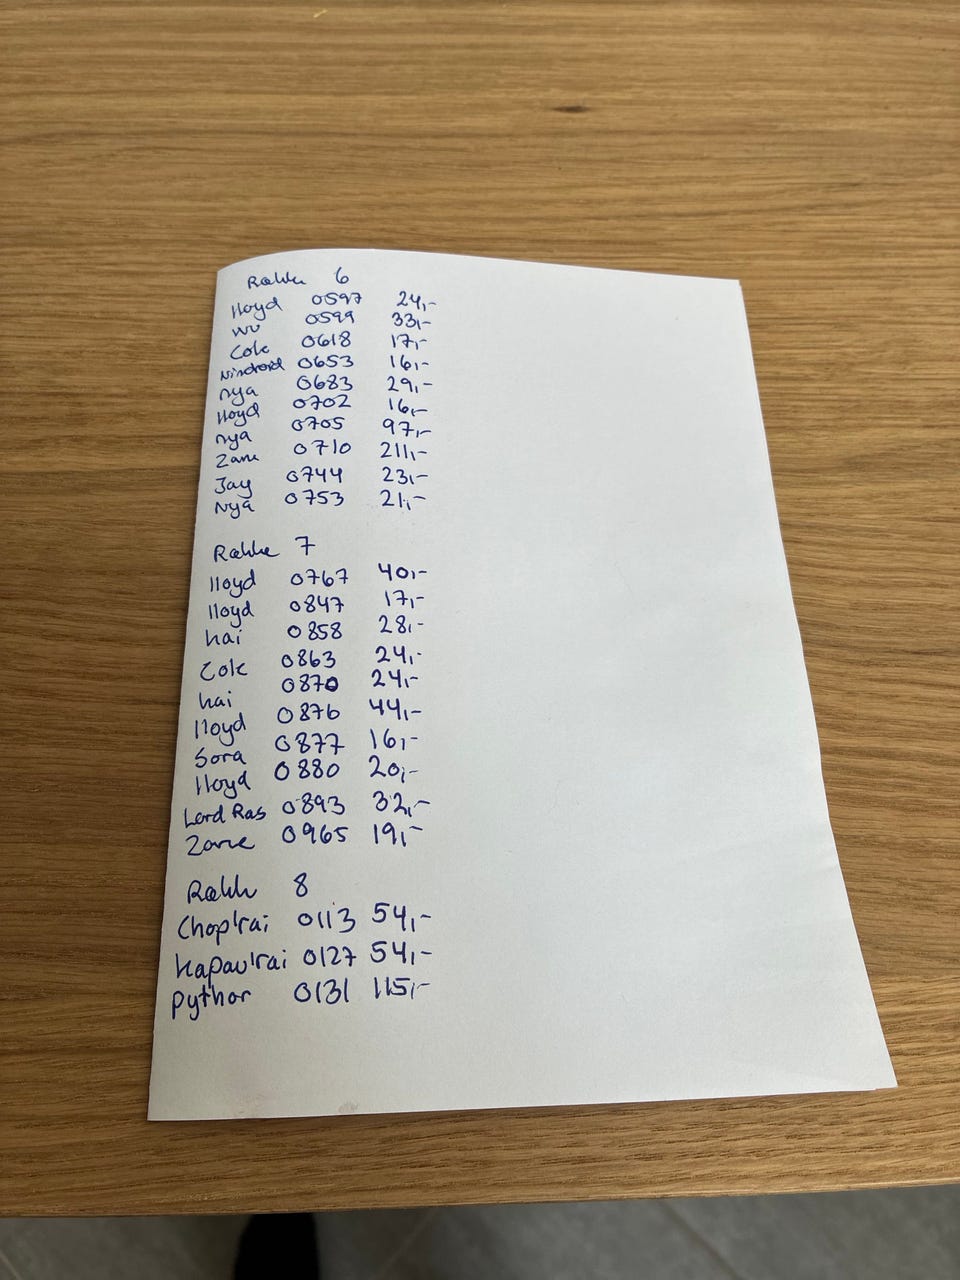 Række 6
lloyd 0597 24,-
wu 0599 33,-
Cole 0618 17,-
Nindroid 0653 16,-
nya 0683 29,-
lloyd 0702 16,-
nya 0705 97,-
Zane 0710 211,-
Jay 0744 23,-
Nya 0753 21,-
Række 7
lloyd 0767 40,-
lloyd 0847 17,-
kai 0858 28,-
Cole 0863 24,-
kai 0870 24,-
lloyd 0876 44,-
Sora 0877 16,-
lloyd 0880 20,-
Lord Ras 0893 32,-
Zane 0965 19,-
Række 8
Chop'rai 0113 54,-
Kapau'rai 0127 54,-
pythor 0131 115,-